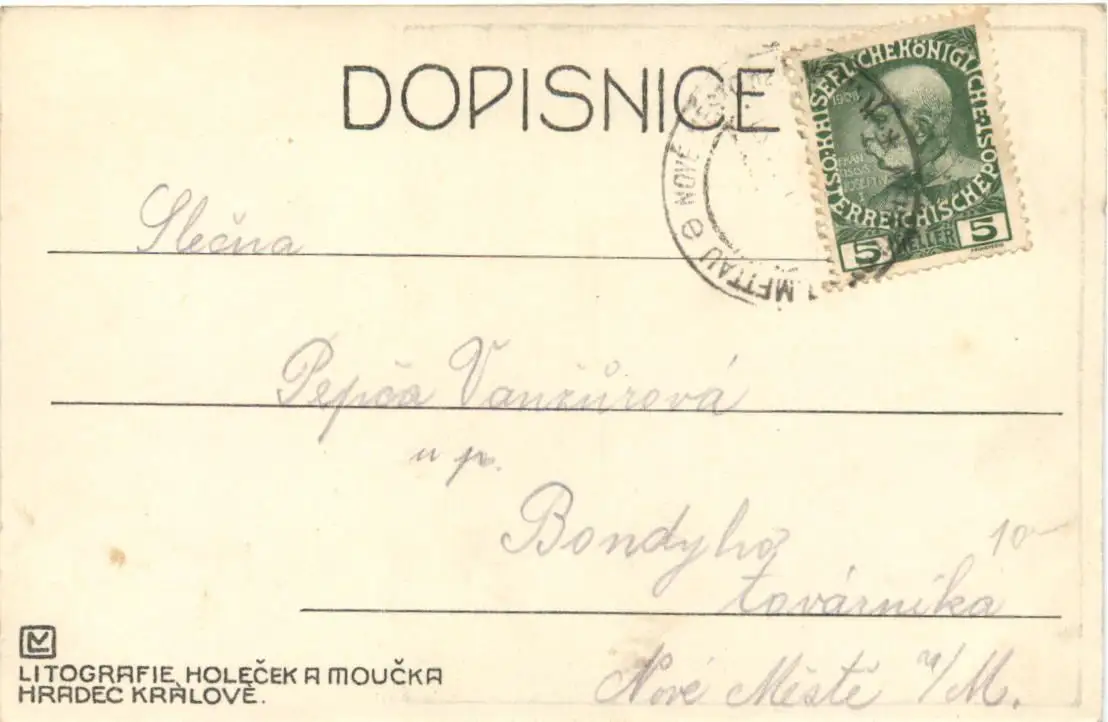 DOPISNICE
KAISERLICHE KÖNIGLICHE ÖSTERREICHISCHE POST
1908
FRAN
CISCVS
IOSEPH
5 HELLER 5
NOVÉ
METTAU
Slečna
Pepča Vančůrová
u p.
Bondyho
10-
továrníka
Nové Městě n/M.
LITOGRAFIE HOLEČEK A MOUČKA
HRADEC KRÁLOVÉ.